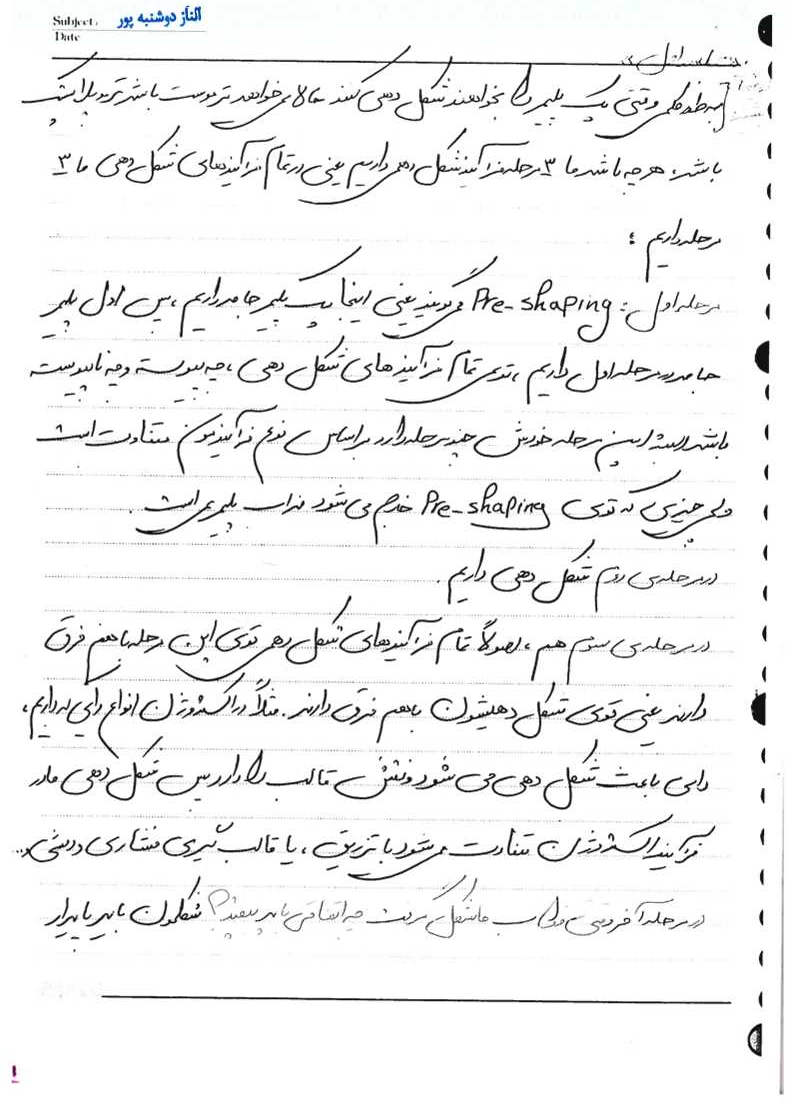 Subject. الناز دوشنبه پور
Date
جلسه اول
به طور کلی وقتی یک پلیمر را بخواهند شکل دهی کنند حالا می‌خواهد ترموست باشد ترموپلاستیک
باشد، هر چه باشد ما ۳ مرحله فرآیند شکل دهی داریم یعنی در تمام فرآیندهای شکل دهی ما ۳
مرحله داریم :
مرحله اول : Pre-shaping می‌گویند یعنی اینجا یک پلیمر جامد داریم ، پس اول پلیمر
جامد در مرحله اول داریم ، توی تمام فرآیندهای شکل دهی ، چه پیوسته و چه ناپیوسته
باشد البته این مرحله خودش چند مرحله دارد بر اساس نوع فرآیندمون متفاوت است
ولی چیزی که توی Pre-shaping خارج می شود مذاب پلیمری است .
در مرحله‌ی دوم شکل دهی داریم .
در مرحله‌ی سوم هم ، اصولاً تمام فرآیندهای شکل دهی توی این مرحله با هم فرق
دارند یعنی توی شکل دهیشون باهم فرق دارند . مثلاً در اکستروژن انواع دای داریم ،
دای باعث شکل دهی می شود و نقش قالب را دارد پس شکل دهی ما در
فرآیند اکستروژن متفاوت می‌شود با تزریق ، یا قالب گیری فشاری و دمشی و...
در مرحله آخر وقتی مذاب ما شکل گرفت چه اتفاقی باید بیفتد؟ شکلمون باید پایدار
۱